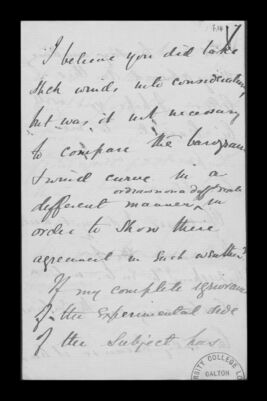 I believe you did take
such winds into consideration,
but was it not necessary
to compare the barogram
& wind curve in a
or drawn on a diff. scale
different manner, in
order to show there
agreement in such weather?
If my complete ignorance
of the Experimental side
of the Subject has
COLLEGE
GALTON